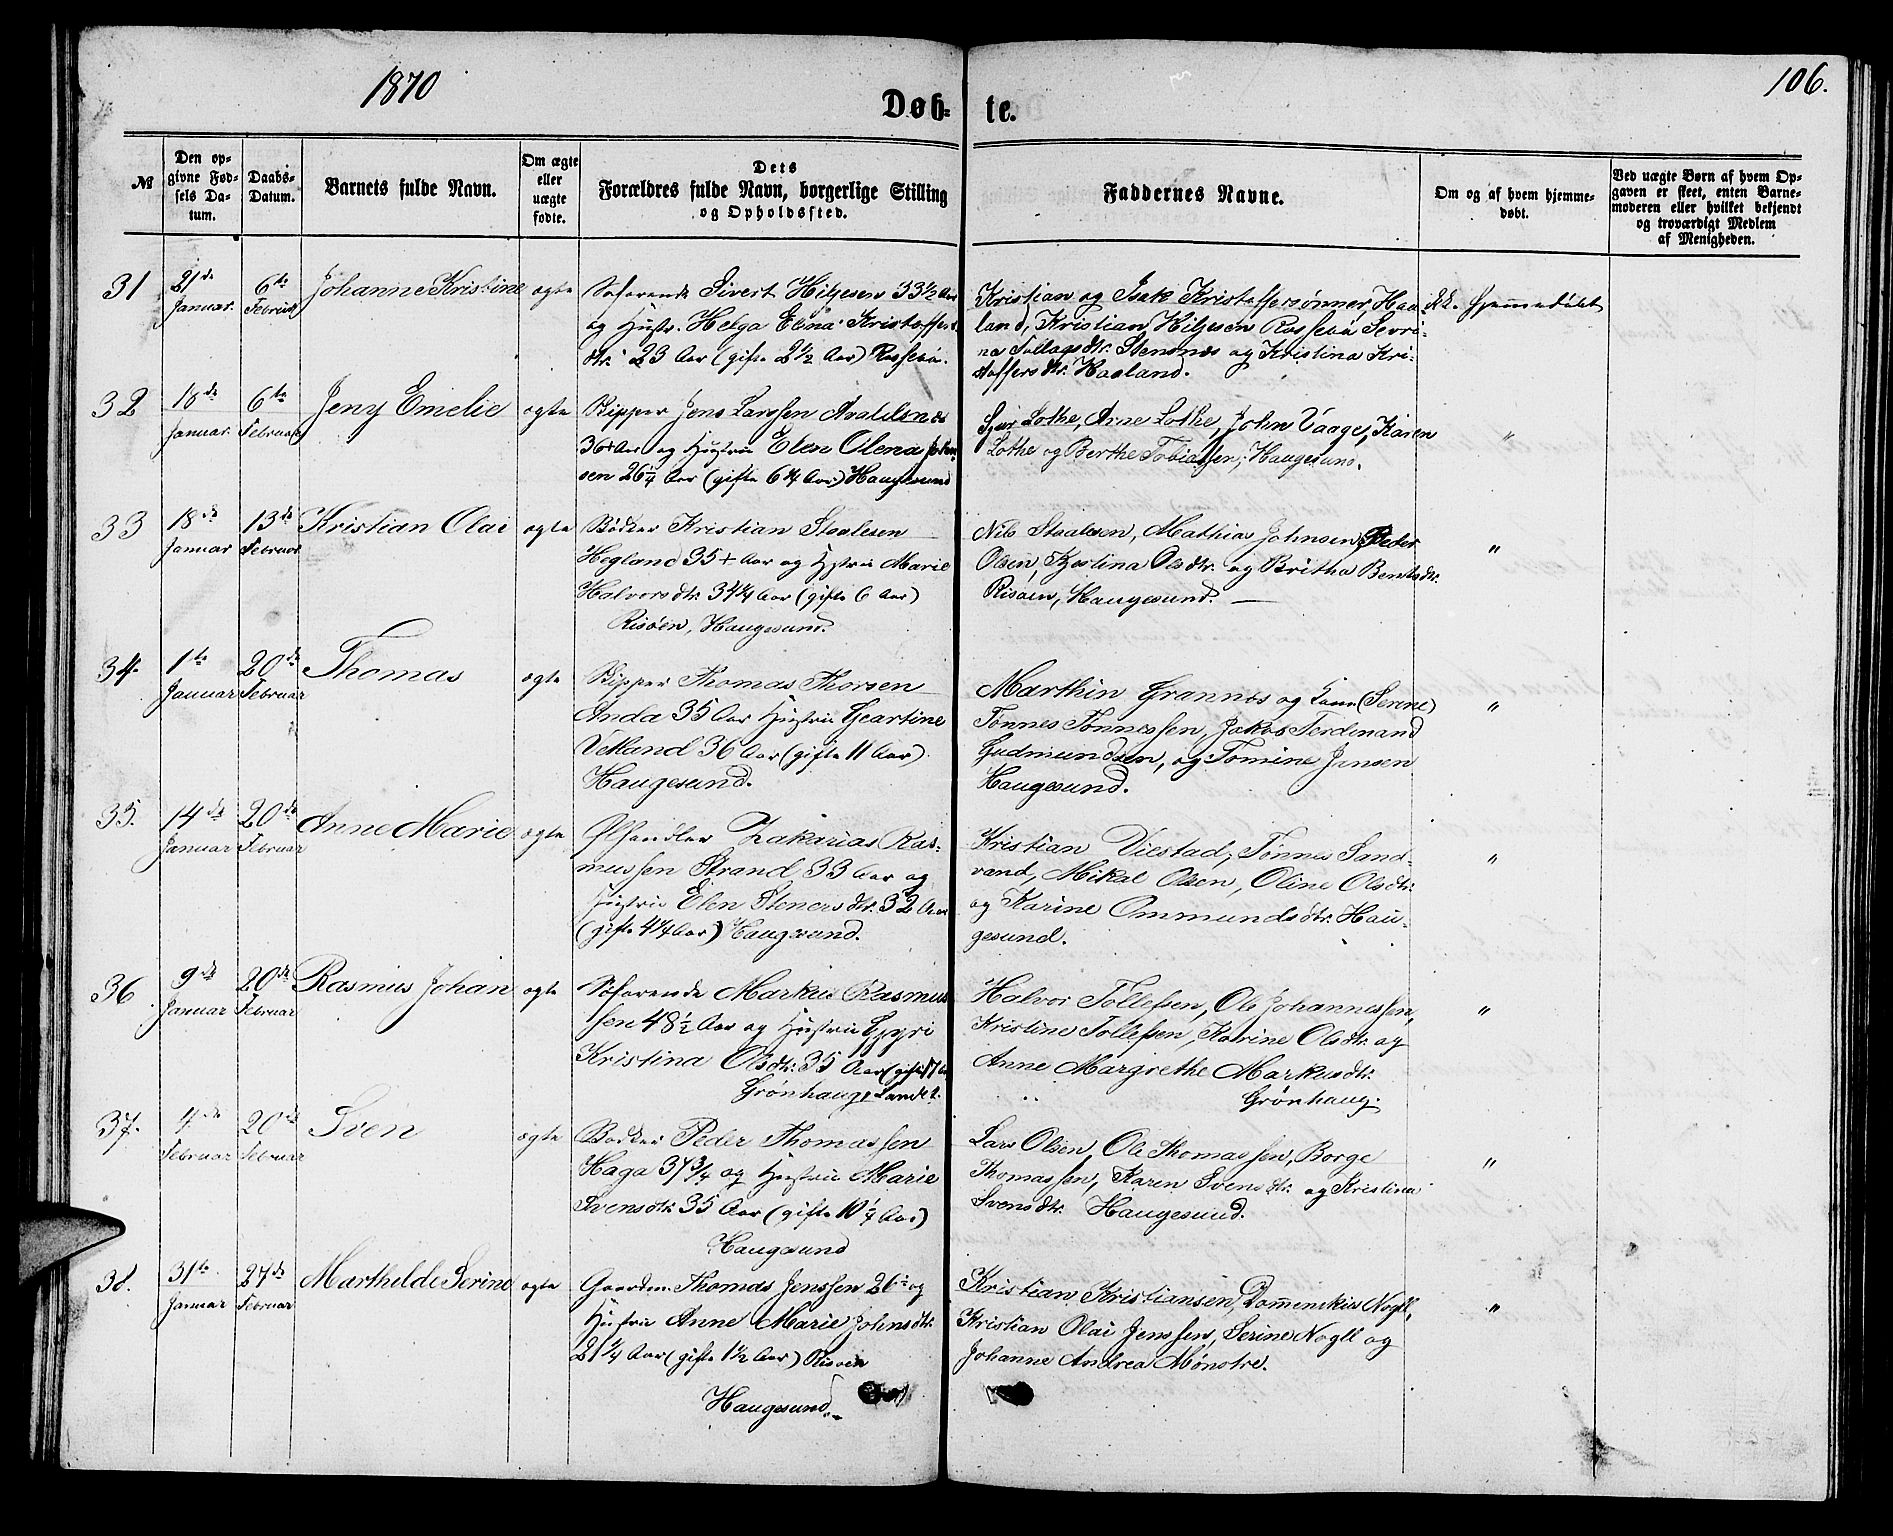 1870
106.
Døb- te.
№
Den op-
givne Fød-
sels Da-
tum.
Daabs-
Datum.
Barnets fulde Navn.
Om ægte
eller
uægte
fødte.
Dets
Forældres fulde Navn, borgerlige Stilling
og Opholdssted.
Faddernes Navne.
Om og af hvem hjemme-
døbt.
Ved uægte Børn af hvem Op-
gaven er skeet, enten Barne-
moderen eller hvilket bekjendt
og troværdigt Medlem
af Menigheden.
31
21de
Januar.
6te
Februar
Johanne Kristine
ægte
Søfarende Sivert Hiljesen 33½ Aar
og Hustr. Helga Elina Kristoffers
dtr. 23 Aar (gifte 2½ Aar) Røssebø.
Kristian og Isak Kristoffersønner, Haa-
land, Kristian Hiljesen Røssebø Sevri-
na Tollagsdtr. Stensnes og Kristina Kri-
stoffersdtr. Haaland.
Ikke hjemmedøbt
32
18de
Januar.
6te
Februar
Jeny Emelie
ægte
Skipper Jens Larssen Avaldsnæs
36+ Aar og Hustru Elen Olena John-
sen 26¼ Aar (gifte 6¼ Aar) Haugesund
Sjur Lothe, Arne Lothe, John Vaage, Karen
Lothe og Berthe Tobiassen, Haugesund.
"
33
18de
Januar
13de
Februar
Kristian Olai
ægte
Bødker Kristian Staalesen
Hegland 35+ Aar og Hustru Marie
Halvorsdtr. 34¼ Aar (gifte 6 Aar)
Risøen, Haugesund.
Nils Staalesen, Mathias Johnsen, Peder
Olsen, Kjestina Olsdtr. og Britha Bentsdtr.
Risøen, Haugesund.
"
34.
1te
Januar
20de
Februar
Thomas
ægte
Skipper Thomas Thorsen
Anda 35 Aar Hustru Geartine
Vetland 36 Aar (gifte 11 Aar)
Haugesund.
Marthin Grannes og Kone (Serene)
Tønnes Tønnessen, Jakob Ferdenand
Gudmundsen, og Tomine Jensen
Haugesund.
"
35.
14de
Januar
20de
Februar
Anne Marie
ægte
Ølhandler Zakarias Ras-
mussen Strand 33 Aar og
Hustru Elen Stenersdtr. 32 Aar
(gifte 4¼ Aar) Haugesund.
Kristian Viestad, Tønnes Sand-
vand, Mikal Olsen, Oline Olsdtr.
og Karine Ommundsdtr. Hau-
gesund.
"
36
9de
Januar
20de
Februar
Rasmus Johan
ægte
Søfarende Markus Rasmus
sen 48½ Aar og Hustru
Kristina Olsdtr. 35 Aar (gifte 17 Aar
Grønhaug Landet.
Halvor Tollefsen, Ole Johannessen,
Kristine Tollefsen, Karine Olsdtr. og
Anne Margrethe Markusdtr.
Grønhaug.
"
37.
4de
Februar
20de
Februar
Sven
ægte
Bødker Peder Thomassen
Haga 37¾ og Hustru Marie
Svensdtr. 35 Aar (gifte 10¼ Aar)
Haugesund
Lars Olsen, Ole Thomassen, Børge
Thomassen, Karen Svensdtr. og Kristina
Svensdtr. Haugesund.
"
38.
31te
Januar
27de
Februar
Marthilde Serine
ægte
Gaardm. Thomas Jenssen 26 og
Hustru Anne Marie Johnsdtr.
21¼ Aar (gifte 1½ Aar) Risøen
Haugesund.
Kristian Kristiansen, Domenikus Nagll,
Kristian Olai Jenssen, Serine Nagll og
Johanne Andrea Mønstre.
"